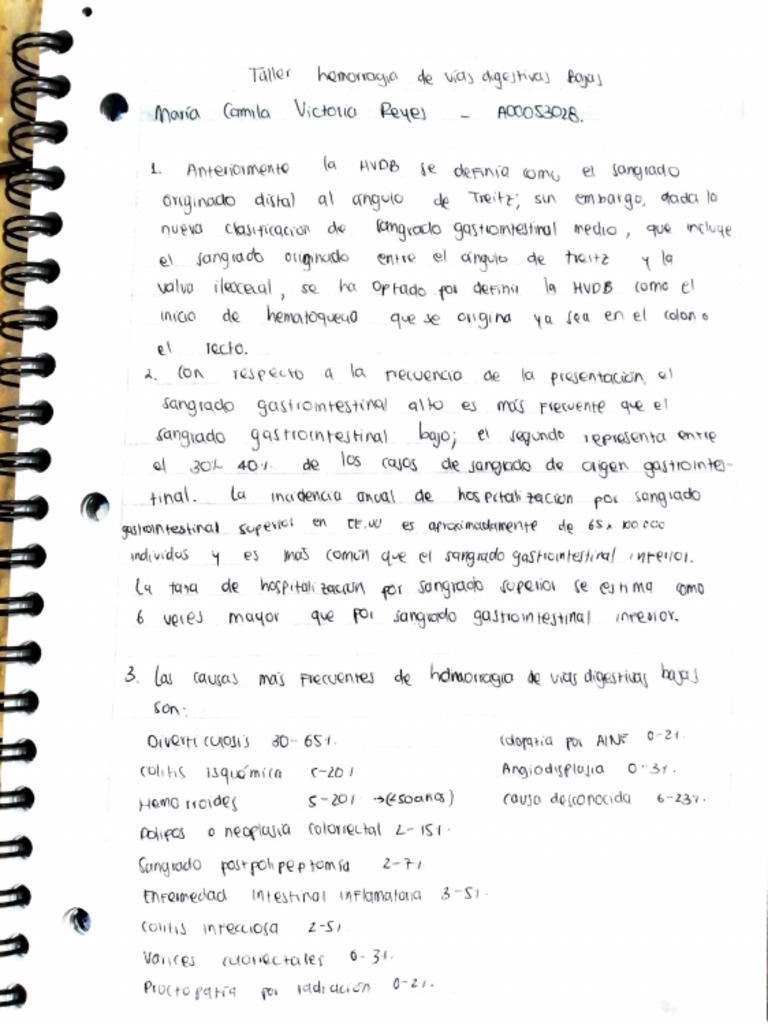 Taller hemorragia de vías digestivas Bajas
María Camila Victoria Reyes - A00053028.
1. Anteriormente la HVDB se definía como el sangrado
originado distal al angulo de Treitz; sin embargo, dada la
nueva clasificación de sangrado gastrointestinal medio, que incluye
el sangrado originado entre el ángulo de treitz y la
valva ileocecal, se ha optado por definir la HVDB como el
inicio de hematoquecia que se origina ya sea en el colon o
el recto.
2. Con respecto a la frecuencia de la presentación, el
sangrado gastrointestinal alto es más frecuente que el
sangrado gastrointestinal bajo; el segundo representa entre
el 30% 40% de los casos de sangrado de origen gastrointes-
tinal. La incidencia anual de hospitalización por sangrado
gastrointestinal superior en EE.UU es aproximadamente de 65 x 100.000
individuos y es más común que el sangrado gastrointestinal inferior.
La tasa de hospitalización por sangrado superior se estima como
6 veces mayor que por sangrado gastrointestinal inferior.
3. Las causas más frecuentes de hemorragia de vías digestivas bajas
son:
Diverticulosis 30-65%.
colitis isquémica 5-20%
Hemorroides 5-20% →(<50años)
Polipos o neoplasia colorrectal 2-15%.
Sangrado postpolipeptomía 2-7%
Enfermedad intestinal inflamatoria 3-5%.
Colitis infecciosa 2-5%
Varices colorrectales 0-3%.
Proctopatía por radiación 0-2%.
colopatia por AINE 0-2%.
Angiodisplasia 0-3%.
causa desconocida 6-23%.